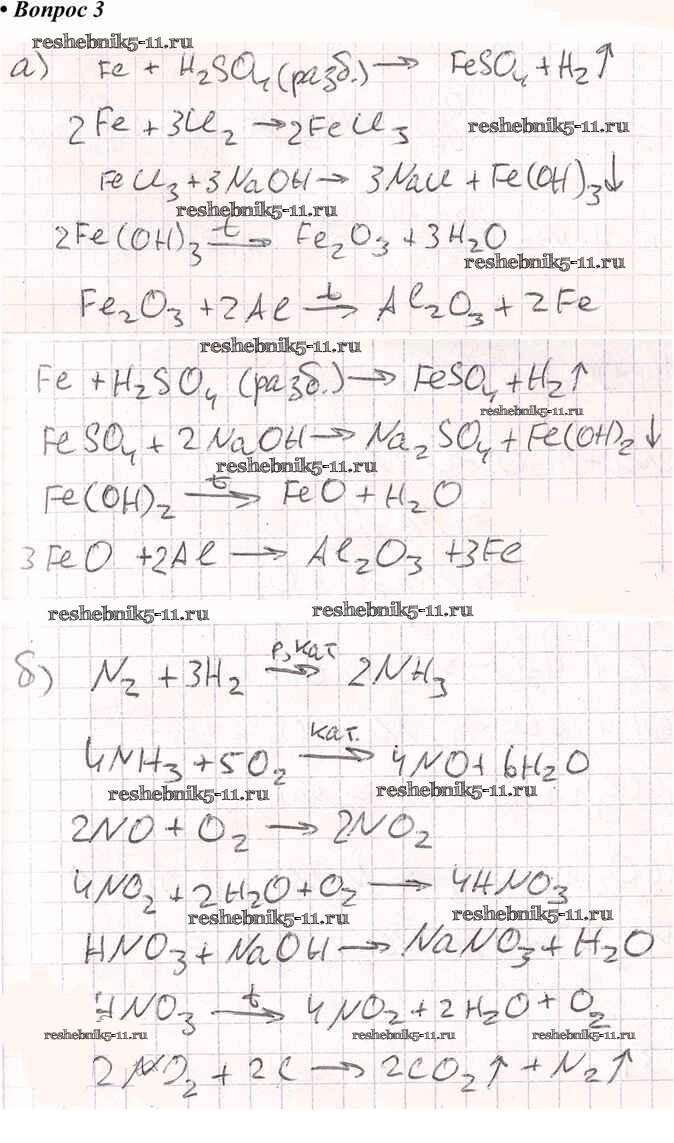 • Вопрос 3
reshebnik5-11.ru
а) Fe + H₂SO₄ (разб.) → FeSO₄ + H₂↑
2Fe + 3Cl₂ → 2FeCl₃
reshebnik5-11.ru
FeCl₃ + 3NaOH → 3NaCl + Fe(OH)₃↓
reshebnik5-11.ru
2Fe(OH)₃ t→ Fe₂O₃ + 3H₂O
reshebnik5-11.ru
Fe₂O₃ + 2Al t→ Al₂O₃ + 2Fe
reshebnik5-11.ru
Fe + H₂SO₄ (разб.) → FeSO₄ + H₂↑
reshebnik5-11.ru
FeSO₄ + 2NaOH → Na₂SO₄ + Fe(OH)₂↓
reshebnik5-11.ru
Fe(OH)₂ t→ FeO + H₂O
3FeO + 2Al → Al₂O₃ + 3Fe
reshebnik5-11.ru reshebnik5-11.ru
б) N₂ + 3H₂ p, кат→ 2NH₃
4NH₃ + 5O₂ кат.→ 4NO + 6H₂O
reshebnik5-11.ru reshebnik5-11.ru
2NO + O₂ → 2NO₂
4NO₂ + 2H₂O + O₂ → 4HNO₃
reshebnik5-11.ru reshebnik5-11.ru
HNO₃ + NaOH → NaNO₃ + H₂O
HNO₃ t→ 4NO₂ + 2H₂O + O₂
reshebnik5-11.ru reshebnik5-11.ru reshebnik5-11.ru
2NO₂ + 2C → 2CO₂↑ + N₂↑